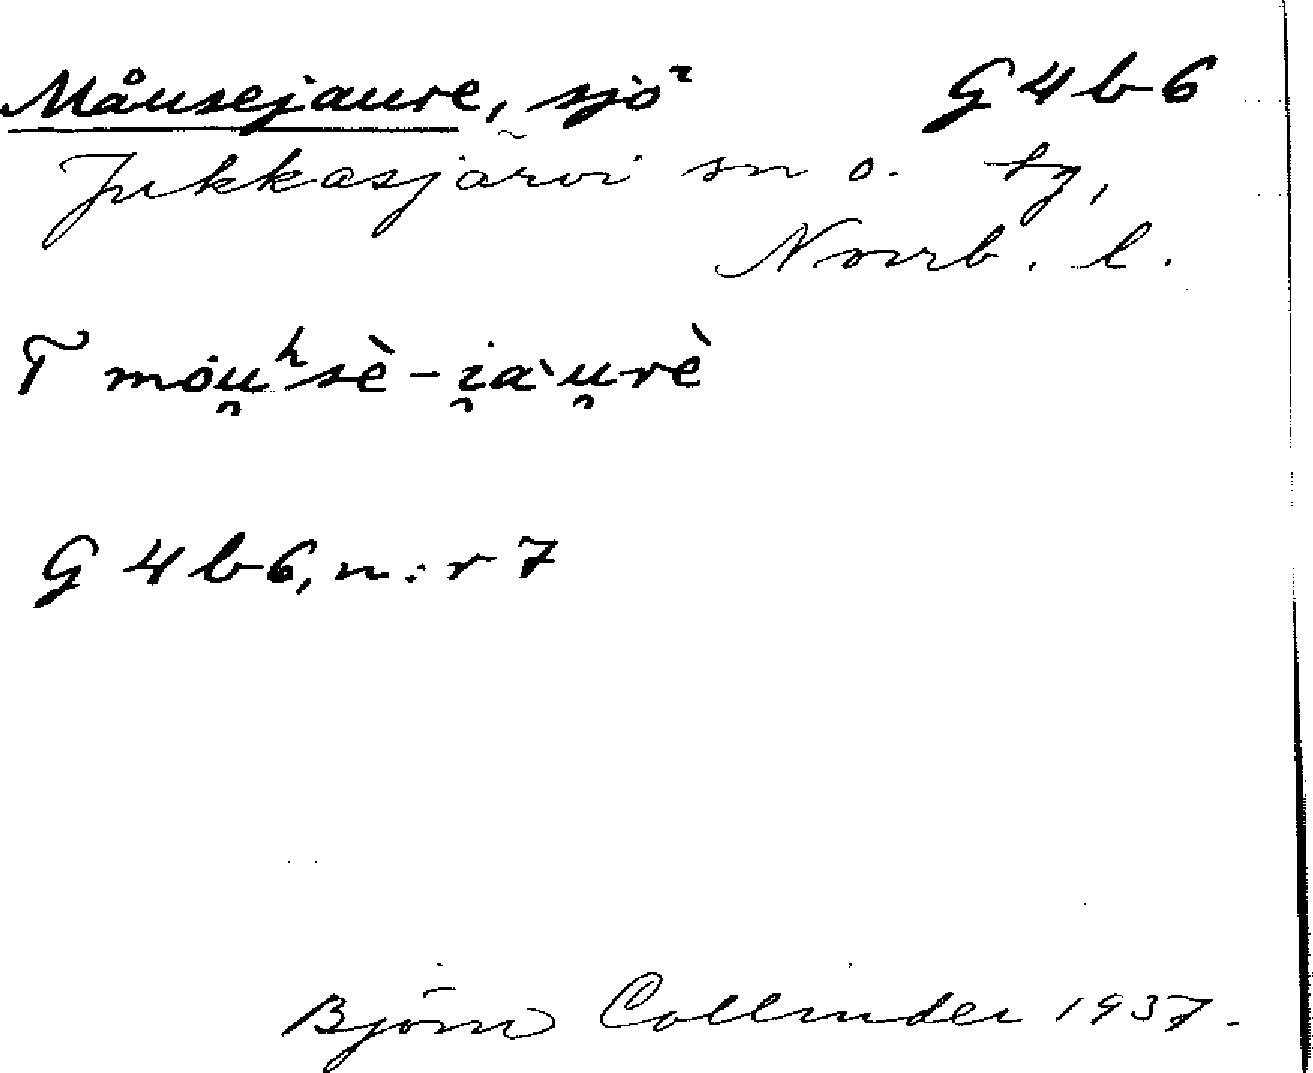 Måusejaure, sjö G4b6
Jukkasjärvi sn o. tg,
Norrb. l.
T mȯu̯ʰsè-i̯a`u̯rè
G4b6, n:r 7
Björn Collinder 1937.